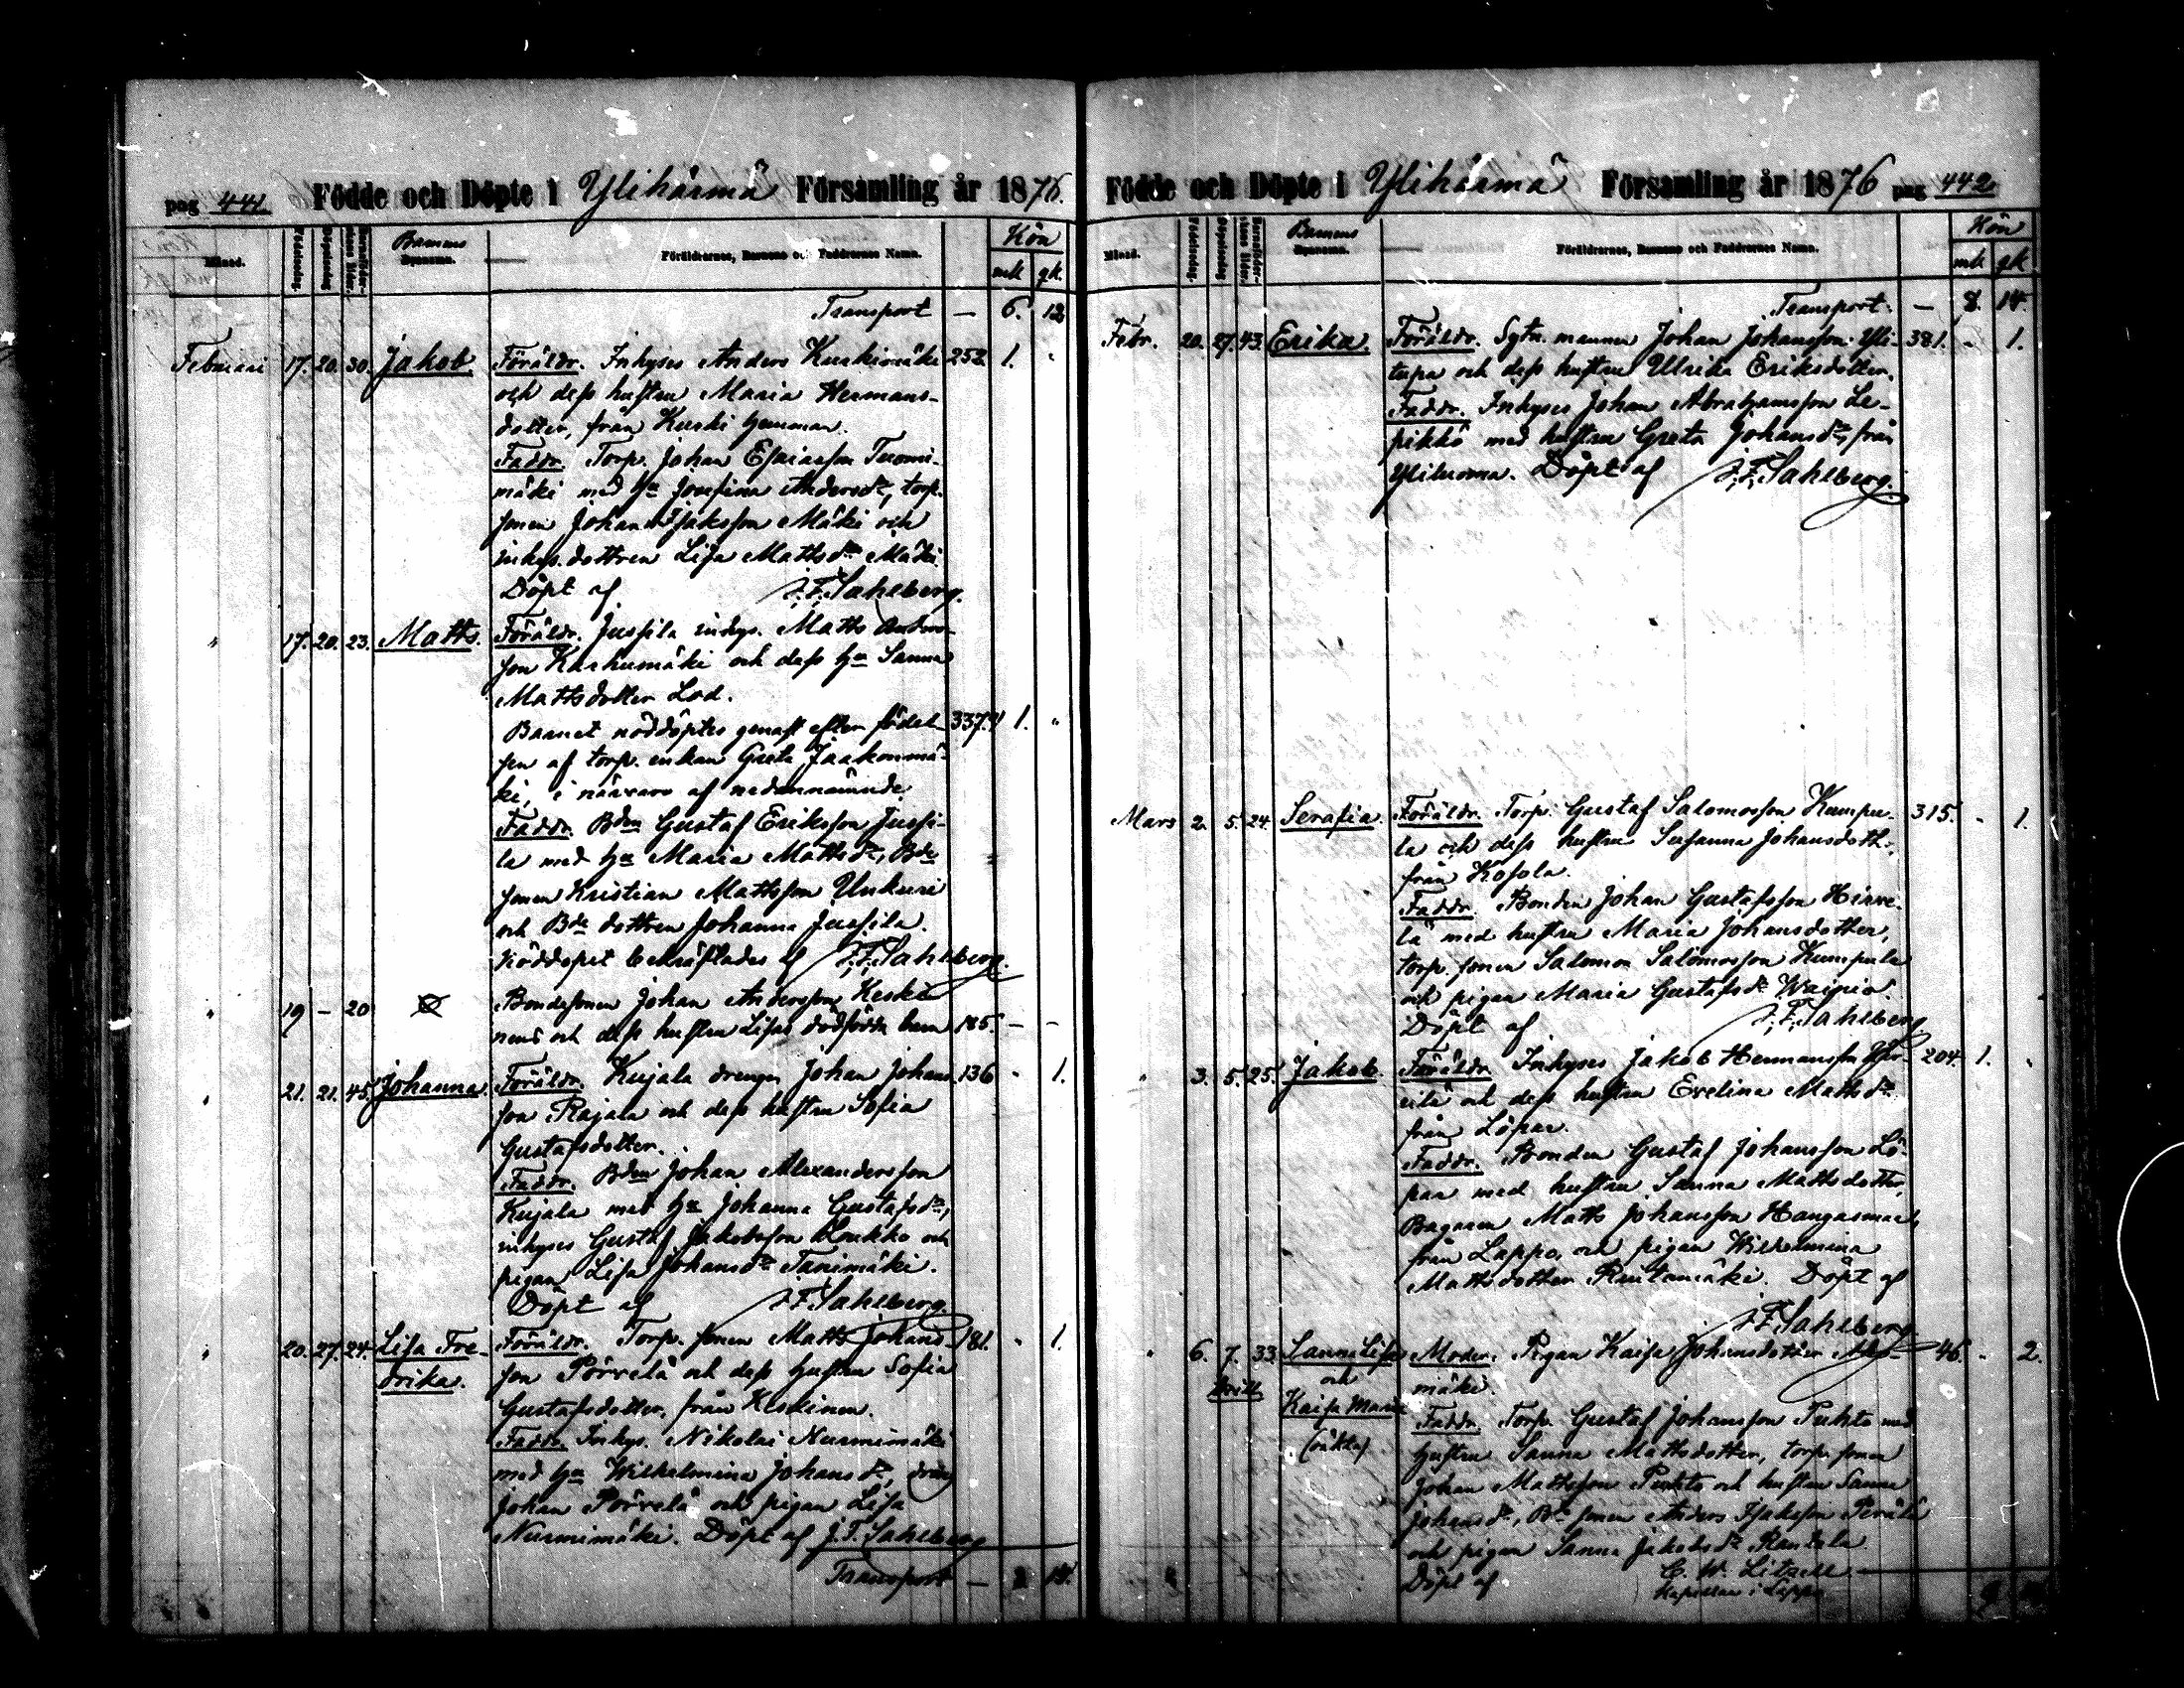 pag 441. Födde och Döpte i Ylihärmä Församling år 1876.
Månad. Födelsedag. Döpelsedag Barnens Dopnamn. Föräldrarnes, Barnens och Faddrarnes Namn. Kön
mk qk.
Transport — 6. 12
Februari 17. 20. 30. Jakob. Föräldr. Inhyses Anders Kuskimäki 252 1. "
och dess hustru Maria Hermans-
dotter, från Kuski hemman.
Faddr. Torp. Johan Esaiasson Tuomi-
mäki med hu Josefina Andersdr, torp.
sonen Johan Isaksson Mäki och
inhys. dottren Lisa Mattsdr Mäki.
Döpt af J. F. Sahlberg.
" 17. 20. 23. Matts. Föräldr. Jussila inhys. Matts Anders-
son Karhumäki och dess hu Sanna
Mattsdotter Lod.
Barnet nöddöptes genast efter födel- 337. 1. "
sen af torp. enkan Greta Jaakonmä-
ki, i närvaro af nedannämnde
Faddr. Bden Gustaf Eriksson Jussi-
la med hu Maria Mattsdr, Bde
sonen Kristian Mattsson Unkuri
och Bde dottren Johanna Jussila.
Nöddopet bekräftades af J. F. Sahlberg.
" 19 — 20 Bondesonen Johan Andersson Keski-
nens och dess hustru Lisas dödfödda barn 185. — —
" 21. 21. 45. Johanna. Föräldr. Kujala drengen Johan Johans- 136 " 1.
son Rajala och dess hustru Sofia
Gustafsdotter.
Faddr. Bden Johan Alexandersson
Kujala med hu Johanna Gustafsdr,
inhyses Gustaf Jakobsson Loukko och
pigan Lisa Johansdr Tanimäki.
Döpt af J. F. Sahlberg.
" 20. 27. 24. Lisa Fre- Föräldr. Torp. sonen Matts Johans- 181. " 1.
drika. son Pörrelä och dess hustru Sofia
Gustafsdotter, från Keskinen.
Faddr. Inhys. Nikolai Nurmimäki
med hu Wilhelmina Johansdr, dräng
Johan Pörrelä och pigan Lisa
Nurmimäki. Döpt af J. F. Sahlberg
Transport — 14.
Födde och Döpte i Ylihärmä Församling år 1876 pag 442
Månad. Födelsedag. Döpelsedag Barnens Dopnamn. Föräldrarnes, Barnens och Faddrarnes Namn. Kön
mk qk
Transport. — 8. 14.
Febr. 20. 27. 43. Erika. Föräldr. Sytn. mannen Johan Johansson Yli- 381. " 1.
tupa och dess hustru Ulrika Eriksdotter.
Faddr. Inhyses Johan Abrahamsson Le-
pikkö med hustru Greta Johansdr, från
Döpt af J. F. Sahlberg.
Mars 2. 5. 24. Serafia. Föräldr. Torp. Gustaf Salomosson Kumpu- 315. " 1.
la och dess hustru Susanna Johansdott:
från Kosola.
Faddr. Bonden Johan Gustafsson Hirve-
lä med hustru Maria Johansdotter,
torp. sonen Salomon Salomosson Kumpula
och pigan Maria Gustafsdr Waipio.
Döpt af J. F. Sahlberg
" 3. 5. 25. Jakob. Föräldr. Inhyses Jakob Hermansson 204. 1. "
och dess hustru Evelina Mattsdr
från Löpar.
Faddr. Bonden Gustaf Johansson Lö-
par med hustru Sanna Mattsdotter,
Bagaren Matts Johansson Hangasmaa,
från Lappo, och pigan Wilhelmina
Mattsdotter Rintamäki. Döpt af
J. F. Sahlberg
" 6. 7. 33. Sanna Lisa Moder: Pigan Kaisa Johansdotter 46. " 2.
och mäki.
Kaisa Maria Faddr. Torp. Gustaf Johansson Puhto med
(oäkta) hustru Sanna Mattsdotter, torp. sonen
Johan Mattsson Puhto och hustru Sanna
Johansdr, Bde sonen Anders Isaksson Perälä
och pigan Sanna Jakobsdr Rantala
Döpt af C. W. Litzell
Kapellan i Lappo